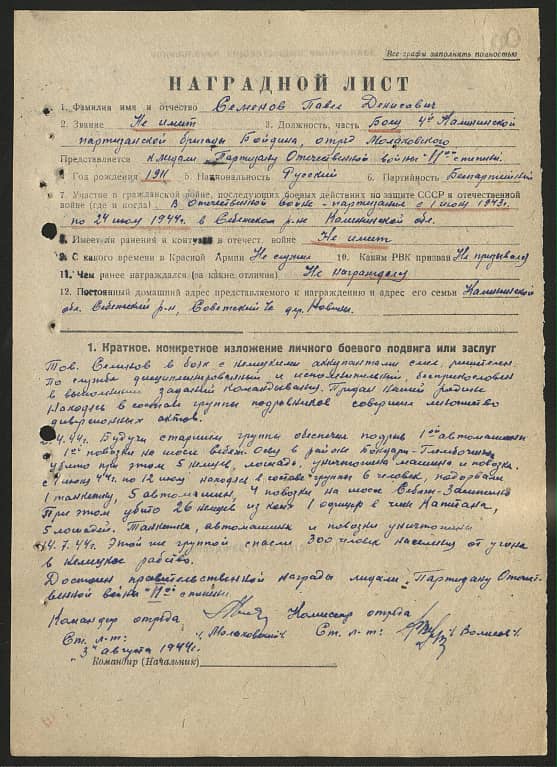 Все графы заполнить полностью
НАГРАДНОЙ ЛИСТ
1. Фамилия имя и отчество Семенов Павел Денисович
2. Звание Не имеет 3. Должность, часть Боец 4й Калининской
партизанской бригады Бойдина, отряд
Представляется к медали Партизану Отечественной войны "II ой степени.
4. Год рождения 1911 5. Национальность Русский 6. Партийность Беспартийный
7. Участие в гражданской войне, последующих боевых действиях по защите СССР и отечественной
войне (где и когда) В Отечественной войне - партизания с 1 июня 1943г.
по 24 июля 1944г. в Себежском р-не Калининской обл.
8. Имеет ли ранения и контузии в отечест. войне Не имеет
9. С какого времени в Красной Армии Не служил 10. Каким РВК призван Не призывался
11. Чем ранее награждался (за какие отличия) Не награждался
12. Постоянный домашний адрес представляемого к награждению и адрес его семьи Калининской
обл. Себежский р-н, Советский с/с дер.
1. Краткое, конкретное изложение личного боевого подвига или заслуг
Тов. Семенов в боях с немецкими оккупантами смел, решителен.
По службе дисциплинированный и исполнительный, беспрекословен
в выполнении заданий командования. Предан нашей родине.
Находясь в составе группы подрывников совершил множество
диверсионных актов.
4.44г. Будучи старшим группы обеспечил подрыв 1ой автомашины
1ой повозки на шоссе Себеж-Осву в районе Бондари-
убито при этом 5 немцев, лошадь, уничтожена машина и повозка.
июня 44г. по 12 июля находясь в составе группы 6 человек, подорвали
1 танкетку, 5 автомашин, 4 повозки на шоссе Себеж-
При этом убито 26 немцев из коих 1 офицер в чине капитана,
5 лошадей. Танкетка, автомашины и повозки уничтожены.
14.7.44г. Этой же группой спасли 300 человек населения от угона
в немецкое рабство.
Достоин правительственной награды медали "Партизану Отечест-
венной войны "II ой степени
Командир отряда Комиссар отряда
Ст. л-т: Ст. л-т:
"3" августа 1944г.
Командир (Начальник)